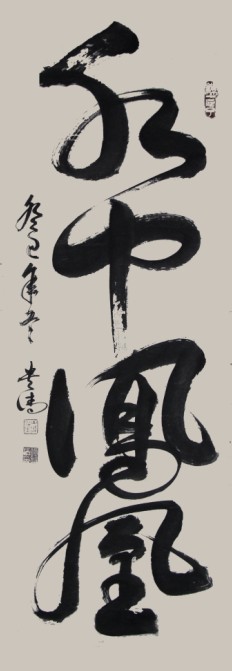 火中鳳凰
癸巳年冬